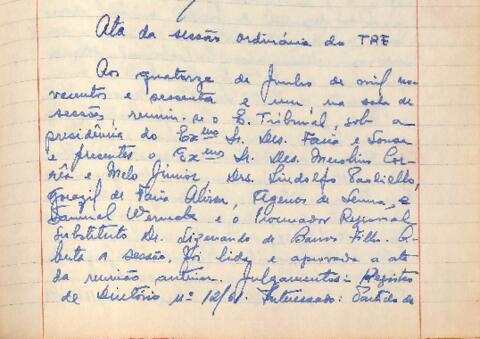 Ata da sessão ordinária do TRE
Aos quatorze de Junho de mil no
vecentos e sessenta e um, na sala de
sessões, reuniu-se o E. Tribunal, sob a
presidência do Exmo Sr. Des. Faria e Sousa
e presentes o Exmo Sr. Des. Merolino Cor-
rêa e Melo Júnior, Drs. Lindolfo
de Faria Alvim, Agenor de Senna, e
Samuel Werneck e o Procurador Regional
Substituto Dr. Lizenando de Barros Filho. A-
berta a sessão, foi lida e aprovada a ata
da reunião anterior. Julgamentos:- Registro
de Diretório nº 12/61. Interessado: Partido de